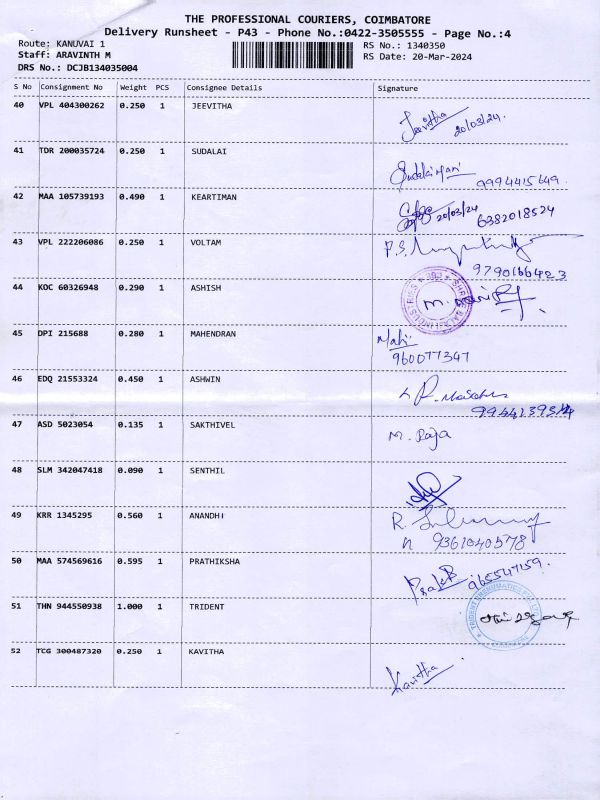 THE PROFESSIONAL COURIERS, COIMBATORE
Delivery Runsheet - P43 - Phone No.:0422-3505555 - Page No.:4
Route: KANUVAI 1 RS No.: 1340350
Staff: ARAVINTH M RS Date: 20-Mar-2024
DRS No.: DCJB134035004
S No Consignment No Weight PCS Consignee Details Signature
40 VPL 404300262 0.250 1 JEEVITHA
Jeevitha 20/03/24.
41 TDR 200035724 0.250 1 SUDALAI
Sudalaimani 9994415649.
42 MAA 105739193 0.490 1 KEARTIMAN
20/03/24 6382018524
43 VPL 222206086 0.250 1 VOLTAM
P.S.
9790166423
44 KOC 60326948 0.290 1 ASHISH
M.
45 DPI 215688 0.280 1 MAHENDRAN
Mahi
960077347
46 EDQ 21553324 0.450 1 ASHWIN
P.
47 ASD 5023054 0.135 1 SAKTHIVEL
M. Raja
48 SLM 342047418 0.090 1 SENTHIL
49 KRR 1345295 0.560 1 ANANDHI
R.
9361040578
50 MAA 574569616 0.595 1 PRATHIKSHA
965547159.
51 THN 944550938 1.000 1 TRIDENT
TRIDENT PNEUMATICS PVT LTD
52 TCG 300487320 0.250 1 KAVITHA
Kavitha